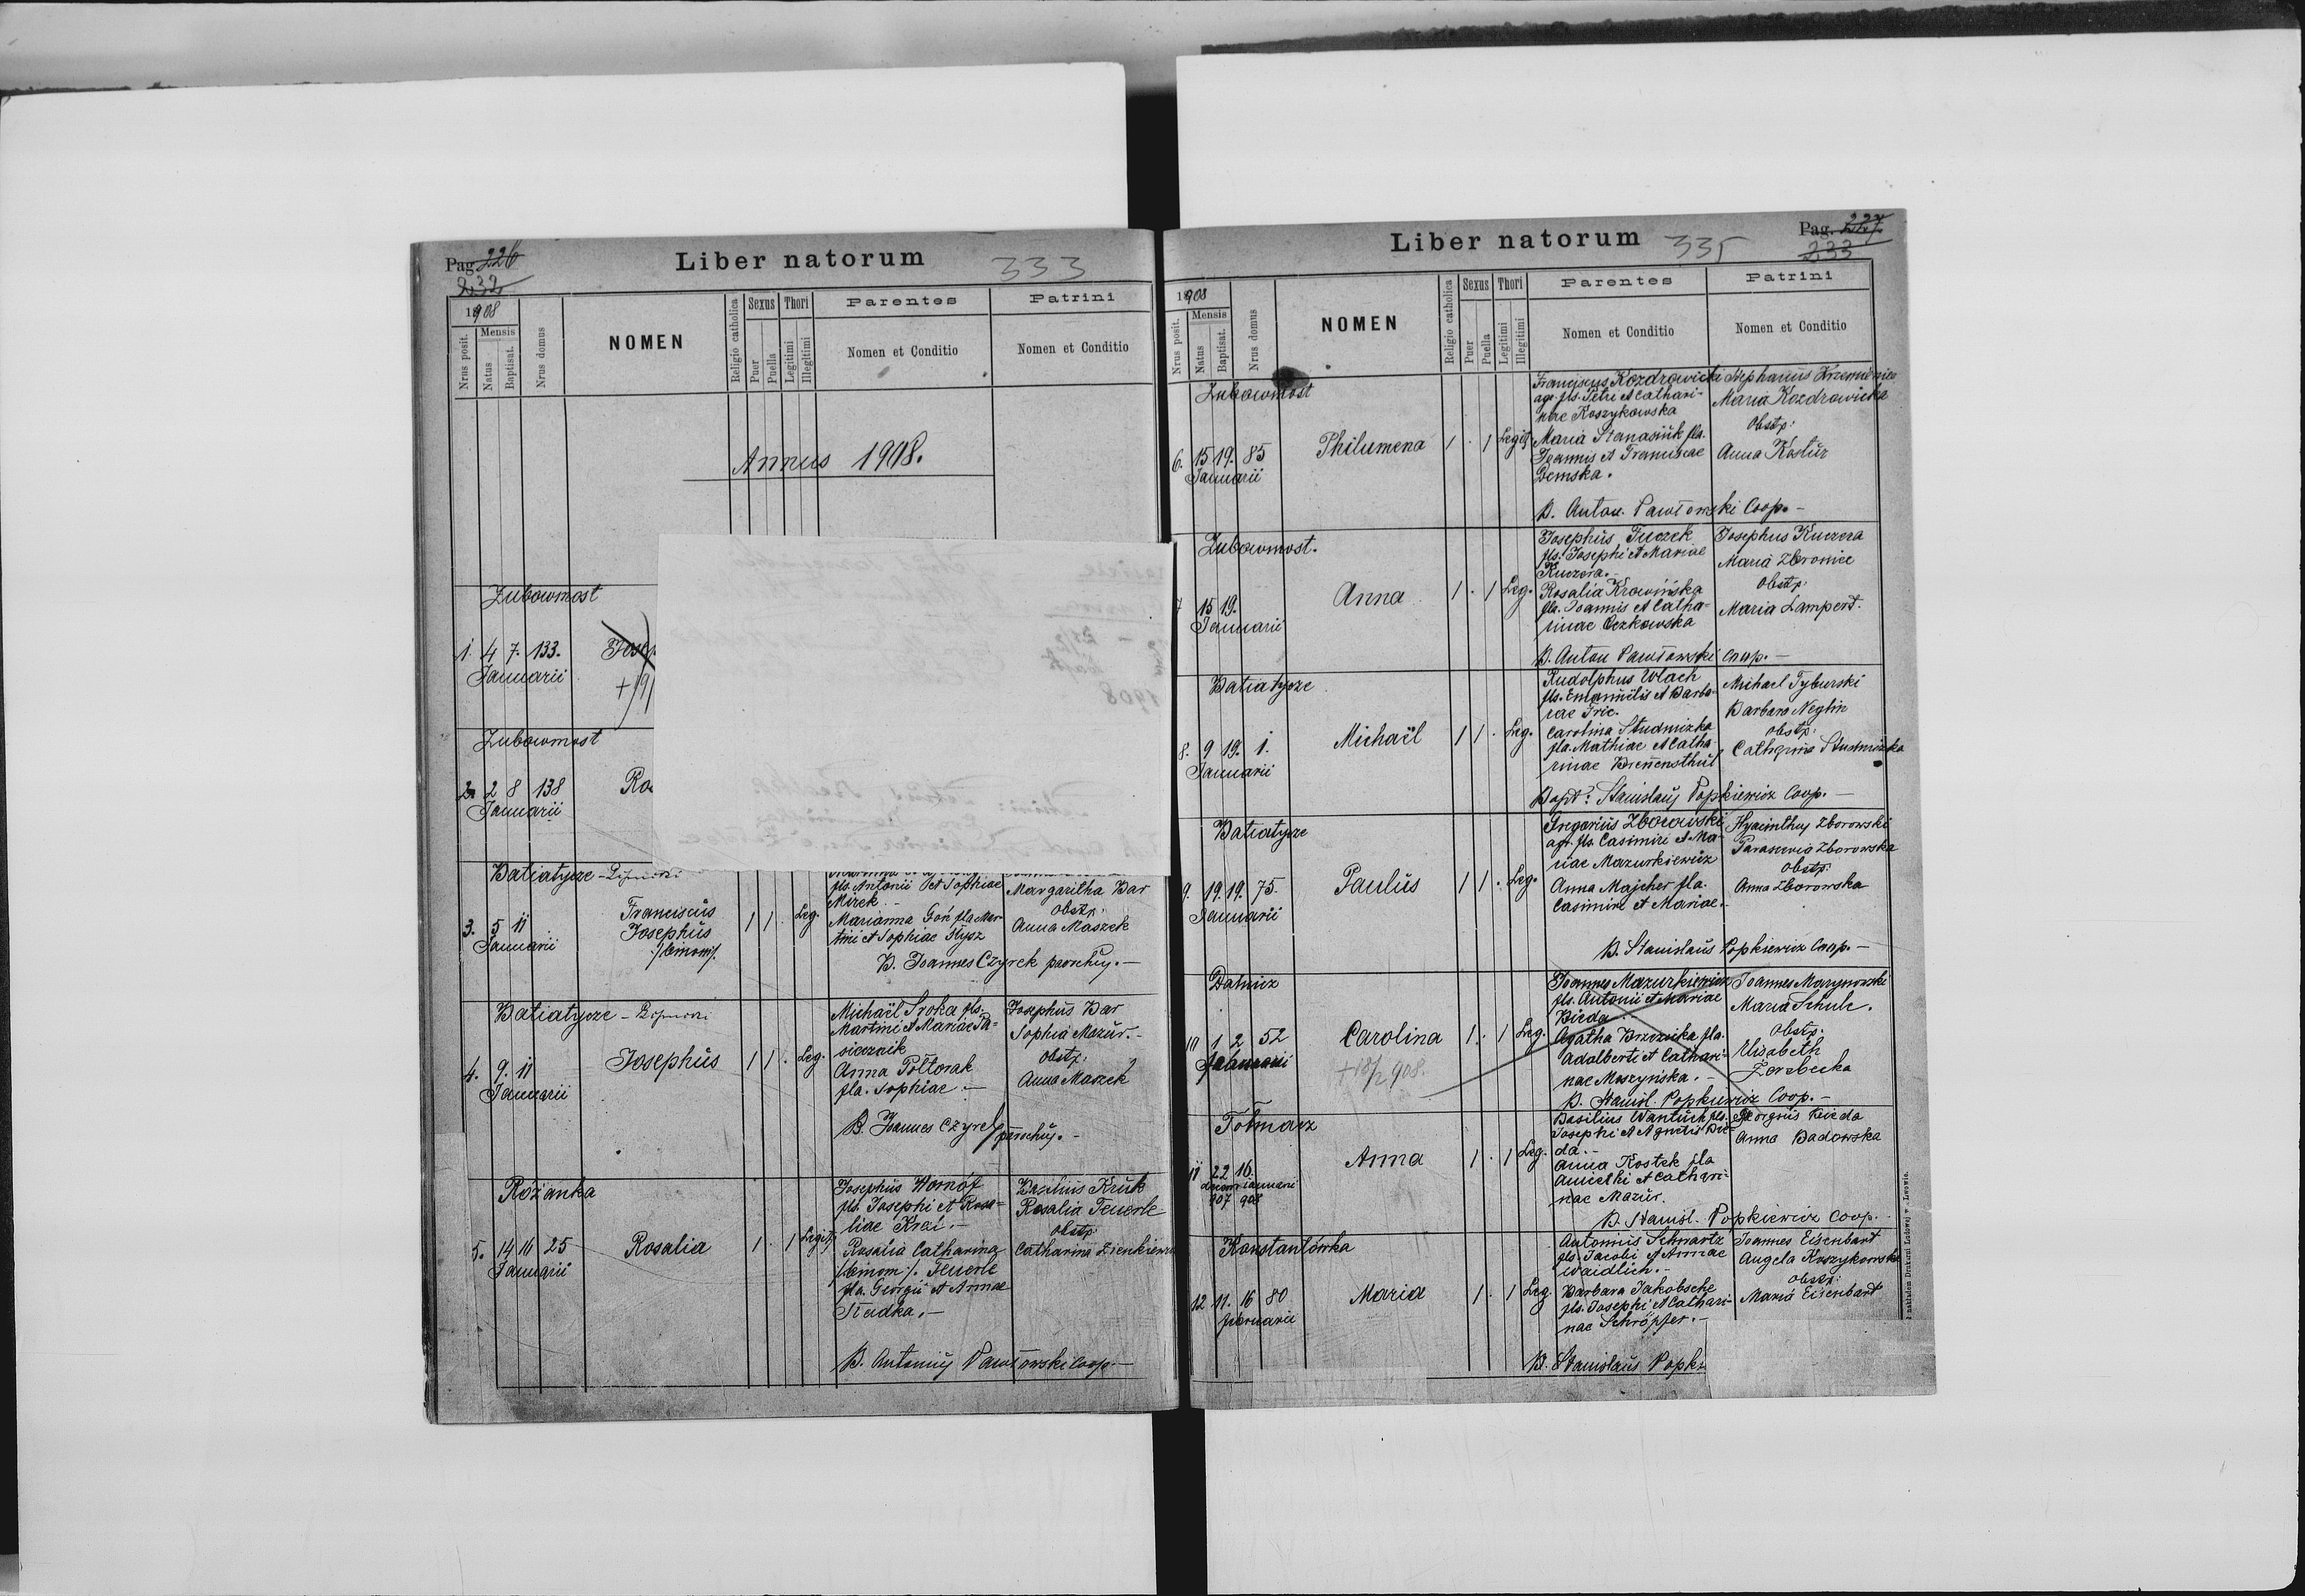 Pag. 226
232
Liber natorum
333
1908
Nrus posit.
Mensis
Natus
Baptisat.
Nrus domus
NOMEN
Religio catholica
Sexus
Puer
Puella
Thori
Legitimi
Illegitimi
Parentes
Nomen et Conditio
Patrini
Nomen et Conditio
Annus 1908.
Zubowmost
1. 4 7. 133.
Januarii
Zubowmost
2. 2 8 138
Januarii
1908
Batiatycze
3. 5 11
Januarii
Franciscus
Josephus
/binom/.
1 1 . Leg.
fls. Antonii et Sophiae
Mirek
Marianna Goń fla Mar-
tini et Sophiae Hysz
Margaritha Bar
Obstp:
Anna Maszek
B. Joannes Czyrek parochus. —
Batiatycze
4. 9. 11
Januarii
Josephus
1 1 . Leg.
Michaël Sroka fls.
Martini et Mariae Pa=
siecznik
Anna Półtorak
fla. Sophiae. —
Josephus Bar
Sophia Mazur. —
Obstp:
Anna Maszek
B. Joannes Czyrek parochus. —
Rożanka
5. 14 16 25
Januarii
Rosalia
1 . 1 Legit.
Josephus Wornof
fls. Josephi et Rosa=
liae Kral. —
Rosalia Catharina
/binom:/. Feuerle
fla. Georgii et Annae
Stadka. —
Basilius Kruk
Rosalia Feuerle
Obstp:
Catharina Zienkiewicz
B. Antonius Pawłowski Coop. —
Pag. 227
233
Liber natorum
335
1908
Nrus posit.
Mensis
Natus
Baptisat.
Nrus domus
NOMEN
Religio catholica
Sexus
Puer
Puella
Thori
Legitimi
Illegitimi
Parentes
Nomen et Conditio
Patrini
Nomen et Conditio
Zubowmost
6. 15 19. 85
Januarii
Philumena
1 . 1 Legit.
Franciscus Kozdrowicki
agr. fls. Petri et Cathari-
nae Koszykowska
Maria Stanasiuk fla.
Joannis et Franciscae
Demska.
Stephanus
Maria Kozdrowicka
Obstp:
Anna Kostur
B. Anton. Pawłowski Coop. —
Zubowmost.
7 15 19.
Januarii
Anna
1 . 1 Leg.
Josephus Tuczek
fls. Josephi et Mariae
Kuczera. —
Rosalia Krowińska
fla. Joannis et Catha-
rinae Oczkowska
Josephus Kuczera
Maria
Obstp:
Maria Lampert.
B. Anton Pawłowski Coop. —
Batiatycze
8. 9 19. 1.
Januarii
Michaël
1 1 . Leg.
Rudolphus Wlach
fls. Emanuelis et Barba-
rae Fric.
Carolina Studnizka
fla. Mathiae et Catha
rinae Brenensthul
Michael Tyburski
Barbara Neglin
obstp:
Catherina Studnizka
Bapt: Stanislaus Popkiewicz Coop. —
Batiatycze
9. 19. 19. 75.
Januarii
Paulus
1 1 . Leg.
Gregorius Zborowski
agr. fls. Casimiri et Ma-
riae Mazurkiewicz
Anna Majcher fla.
Casimiri et Mariae.
Hyacinthus Zborowski
Parascevia Zborowska
Obstp:
Anna Zborowska
B. Stanislaus Popkiewicz Coop. —
Dalnicz
10 1 2 52
Februarii
Carolina
+ 18/2 908.
1 . 1 Leg.
Joannes Mazurkiewicz
fls. Antonii et Mariae
Bieda
Agatha Brzezicka fla.
Adalberti et Cathari-
nae Moszyńska. —
Joannes Marynowski
Maria Schulc.
Obstp:
Elisabeth
Zarzbecka
B. Stanisl. Popkiewicz Coop. —
Tołmacz
11 22 16.
decem ianuarii
907 908
Anna
1 . 1 Leg.
Basilius Wantuch fls.
Josephi et Agnetis Bie=
da. —
Anna Kostek fla
Aniethi et Cathari-
nae Mazur.
Georgius Bieda
Anna Badowska
B. Stanisl. Popkiewicz Coop.
Konstantówka
12 11. 16 80
februarii
Maria
1 . 1 Leg.
Antonius Schwartz
fls. Jacobi et Annae
Waidlich. —
Barbara Jakobsche
fls. Josephi et Cathari-
nae Schröpfer. —
Joannes Eisenbart
Angela Koszykowska
Obstp:
Maria Eisenbart
B. Stanislaus Popki
nakładem Drukarni Ludowej w Lwowie.